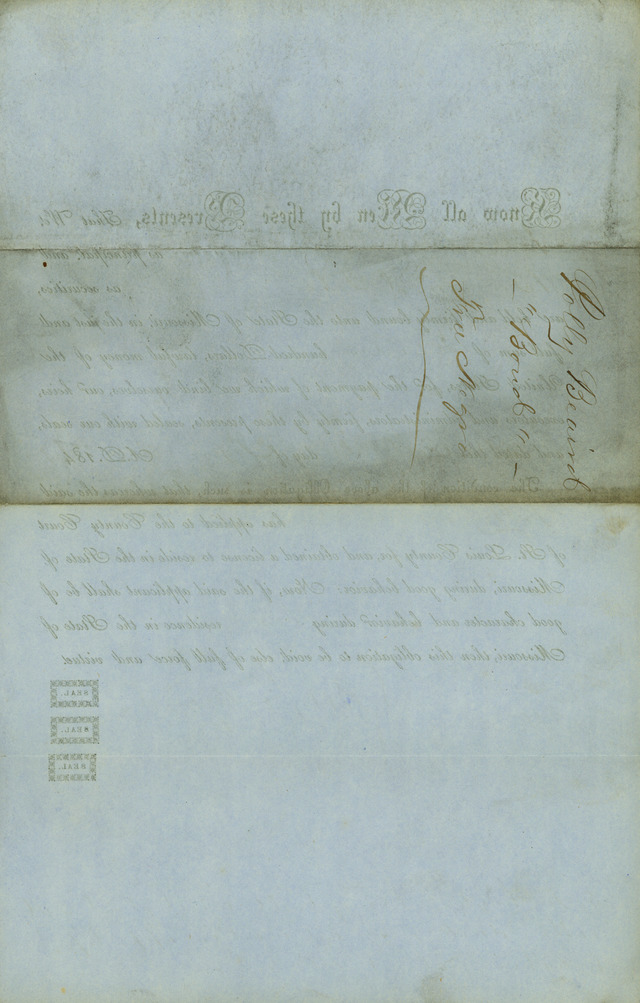 Polly Beaird
" Bond " -
Free Negro
Know all Men by these Presents, That We
as principal, and
as securities,
are held and firmly bound unto the State of Missouri, in the just and
hundred Dollars, lawful money of the
United States, for the payment of which we bind ourselves, our heirs,
executors and administrators, firmly by these presents, sealed with our seals,
and dated this day of A.D. 184
The condition of the above Obligation is such, that whereas the said
has applied to the County Court
of St. Louis County for, and obtained a license to reside in the State of
Missouri, during good behavior: Now, if the said applicant shall be of
good character and behavior during residence in the State of
Missouri, then this obligation to be void, else of full force and virtue.
SEAL.
SEAL.
SEAL.